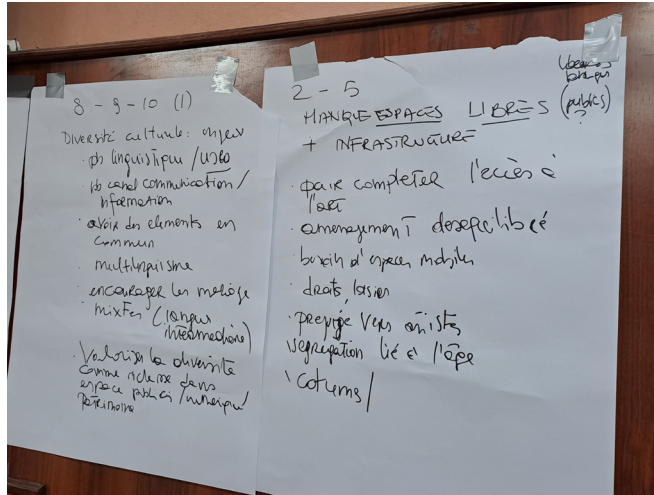 8 - 9 - 10 (1)
Diversité culturelle: enjeu
· pb linguistique /
· pb canal communication /
information
· avoir des elements en
commun
· multilinguisme
· encourager les
mixtes (langue
intermédiaire)
· Valoriser la diversité
comme richesse dans
espace public / numérique /
patrimoine
2 - 5
MANQUE ESPACES LIBRES
(publics)
?
+ INFRASTRUCTURE
· pair completer l'accès à
l'art
· amenagement desequilibré
· besoin d'espaces mobiles
· droits, loisirs
· prejugé vers artistes
segregation lié à l'âge